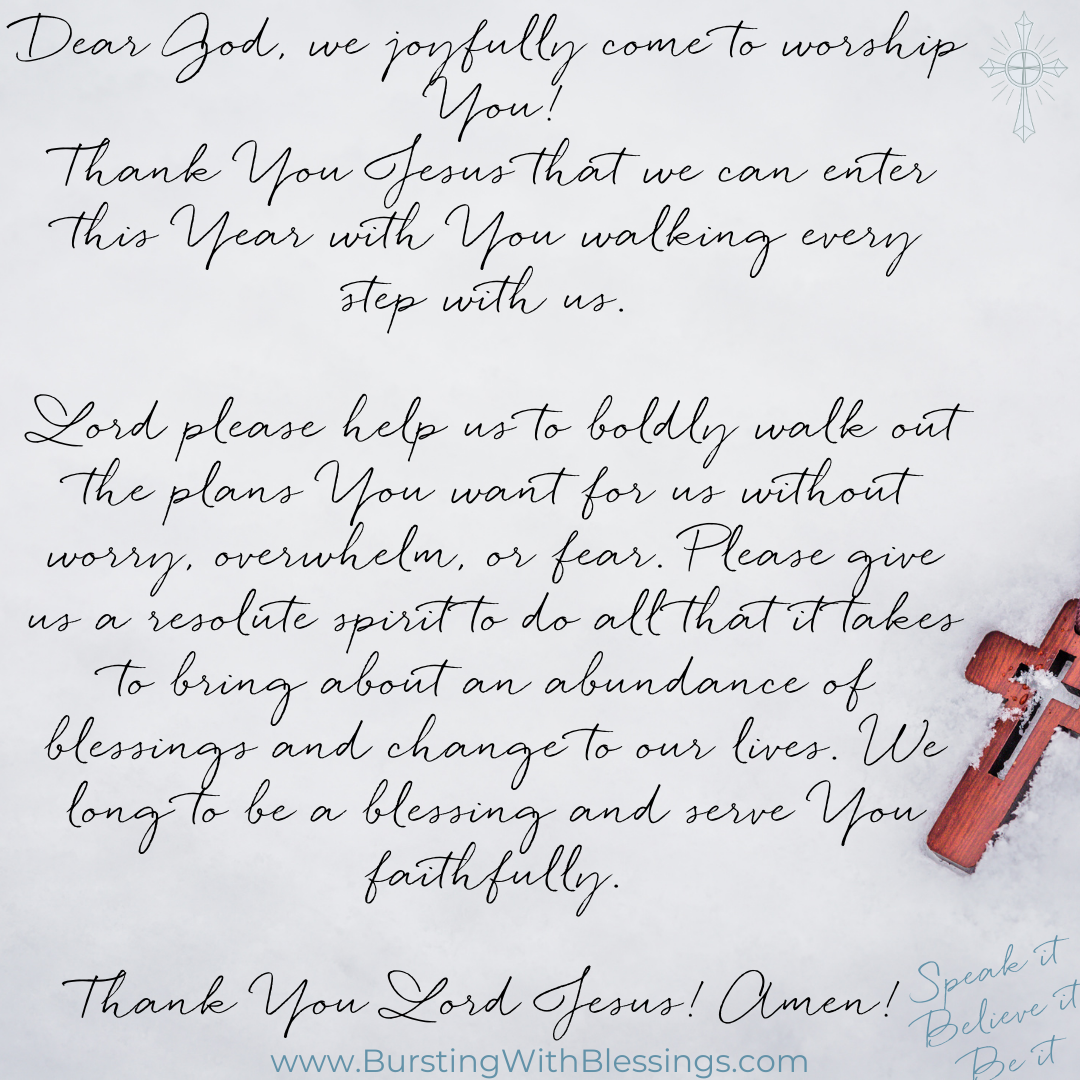 Dear God, we joyfully come to worship
You!
Thank You Jesus that we can enter
this Year with You walking every
step with us.
Lord please help us to boldly walk out
the plans You want for us without
worry, overwhelm, or fear. Please give
us a resolute spirit to do all that it takes
to bring about an abundance of
blessings and change to our lives. We
long to be a blessing and serve You
faithfully.
Thank You Lord Jesus! Amen!
Speak it
Believe it
Be it
www.BurstingWithBlessings.com